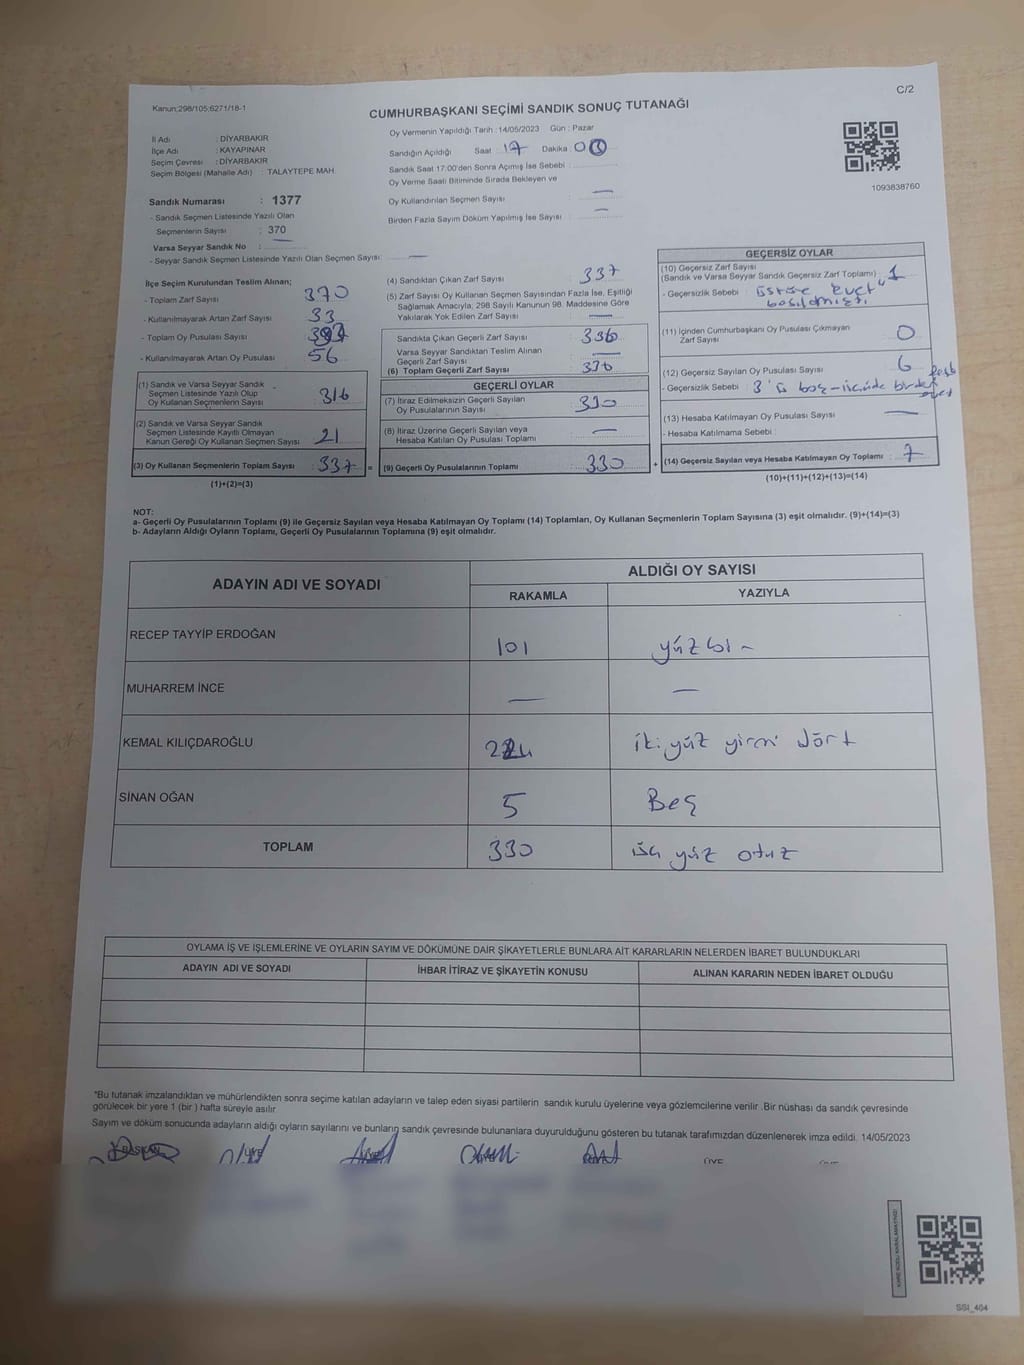 Kanun:298/105;6271/18-1
C/2
CUMHURBAŞKANI SEÇİMİ SANDIK SONUÇ TUTANAĞI
İl Adı : DİYARBAKIR
İlçe Adı : KAYAPINAR
Seçim Çevresi : DİYARBAKIR
Seçim Bölgesi (Mahalle Adı) : TALAYTEPE MAH.
Oy Vermenin Yapıldığı Tarih : 14/05/2023 Gün : Pazar
Sandığın Açıldığı Saat : 17 Dakika :
Sandık Saat 17:00'den Sonra Açımış İse Sebebi :
Oy Verme Saati Bitiminde Sırada Bekleyen ve
Oy Kullandırılan Seçmen Sayısı : —
Birden Fazla Sayım Döküm Yapılmış İse Sayısı : —
1093838760
Sandık Numarası : 1377
- Sandık Seçmen Listesinde Yazılı Olan
Seçmenlerin Sayısı : 370
Varsa Seyyar Sandık No : —
- Seyyar Sandık Seçmen Listesinde Yazılı Olan Seçmen Sayısı: —
İlçe Seçim Kurulundan Teslim Alınan;
- Toplam Zarf Sayısı : 370
- Kullanılmayarak Artan Zarf Sayısı : 33
- Toplam Oy Pusulası Sayısı :
- Kullanılmayarak Artan Oy Pusulası : 56
(1) Sandık ve Varsa Seyyar Sandık
Seçmen Listesinde Yazılı Olup
Oy Kullanan Seçmenlerin Sayısı : 316
(2) Sandık ve Varsa Seyyar Sandık
Seçmen Listesinde Kayıtlı Olmayan
Kanun Gereği Oy Kullanan Seçmen Sayısı : 21
(3) Oy Kullanan Seçmenlerin Toplam Sayısı : 337 =
(1)+(2)=(3)
(4) Sandıktan Çıkan Zarf Sayısı : 337
(5) Zarf Sayısı Oy Kullanan Seçmen Sayısından Fazla İse, Eşitliği
Sağlamak Amacıyla; 298 Sayılı Kanunun 98. Maddesine Göre
Yakılarak Yok Edilen Zarf Sayısı : —
Sandıkta Çıkan Geçerli Zarf Sayısı : 336
Varsa Seyyar Sandıktan Teslim Alınan
Geçerli Zarf Sayısı : —
(6) Toplam Geçerli Zarf Sayısı : 336
GEÇERLİ OYLAR
(7) İtiraz Edilmeksizin Geçerli Sayılan
Oy Pusulalarının Sayısı : 330
(8) İtiraz Üzerine Geçerli Sayılan veya
Hesaba Katılan Oy Pusulası Toplamı : —
(9) Geçerli Oy Pusulalarının Toplamı : 330 +
GEÇERSİZ OYLAR
(10) Geçersiz Zarf Sayısı
(Sandık ve Varsa Seyyar Sandık Geçersiz Zarf Toplamı) : 1
- Geçersizlik Sebebi : üstüne "Evet"
basılmıştı
(11) İçinden Cumhurbaşkanı Oy Pusulası Çıkmayan
Zarf Sayısı : 0
(12) Geçersiz Sayılan Oy Pusulası Sayısı : 6
- Geçersizlik Sebebi : 3'ü boş - içinde birden fazla
evet
(13) Hesaba Katılmayan Oy Pusulası Sayısı : —
- Hesaba Katılmama Sebebi :
(14) Geçersiz Sayılan veya Hesaba Katılmayan Oy Toplamı : 7
(10)+(11)+(12)+(13)=(14)
NOT:
a- Geçerli Oy Pusulalarının Toplamı (9) ile Geçersiz Sayılan veya Hesaba Katılmayan Oy Toplamı (14) Toplamları, Oy Kullanan Seçmenlerin Toplam Sayısına (3) eşit olmalıdır. (9)+(14)=(3)
b- Adayların Aldığı Oyların Toplamı, Geçerli Oy Pusulalarının Toplamına (9) eşit olmalıdır.
ADAYIN ADI VE SOYADI ALDIĞI OY SAYISI
RAKAMLA YAZIYLA
RECEP TAYYİP ERDOĞAN 101 yüzbir
MUHARREM İNCE — —
KEMAL KILIÇDAROĞLU 224 iki yüz yirmi dört
SİNAN OĞAN 5 Beş
TOPLAM 330 üç yüz otuz
OYLAMA İŞ VE İŞLEMLERİNE VE OYLARIN SAYIM VE DÖKÜMÜNE DAİR ŞİKAYETLERLE BUNLARA AİT KARARLARIN NELERDEN İBARET BULUNDUKLARI
ADAYIN ADI VE SOYADI İHBAR İTİRAZ VE ŞİKAYETİN KONUSU ALINAN KARARIN NEDEN İBARET OLDUĞU
*Bu tutanak imzalandıktan ve mühürlendikten sonra seçime katılan adayların ve talep eden siyasi partilerin sandık kurulu üyelerine veya gözlemcilerine verilir .Bir nüshası da sandık çevresinde
görülecek bir yere 1 (bir ) hafta süreyle asılır.
Sayım ve döküm sonucunda adayların aldığı oyların sayılarını ve bunların sandık çevresinde bulunanlara duyurulduğunu gösteren bu tutanak tarafımızdan düzenlenerek imza edildi. 14/05/2023
BAŞKAN ÜYE ÜYE
SSI_464